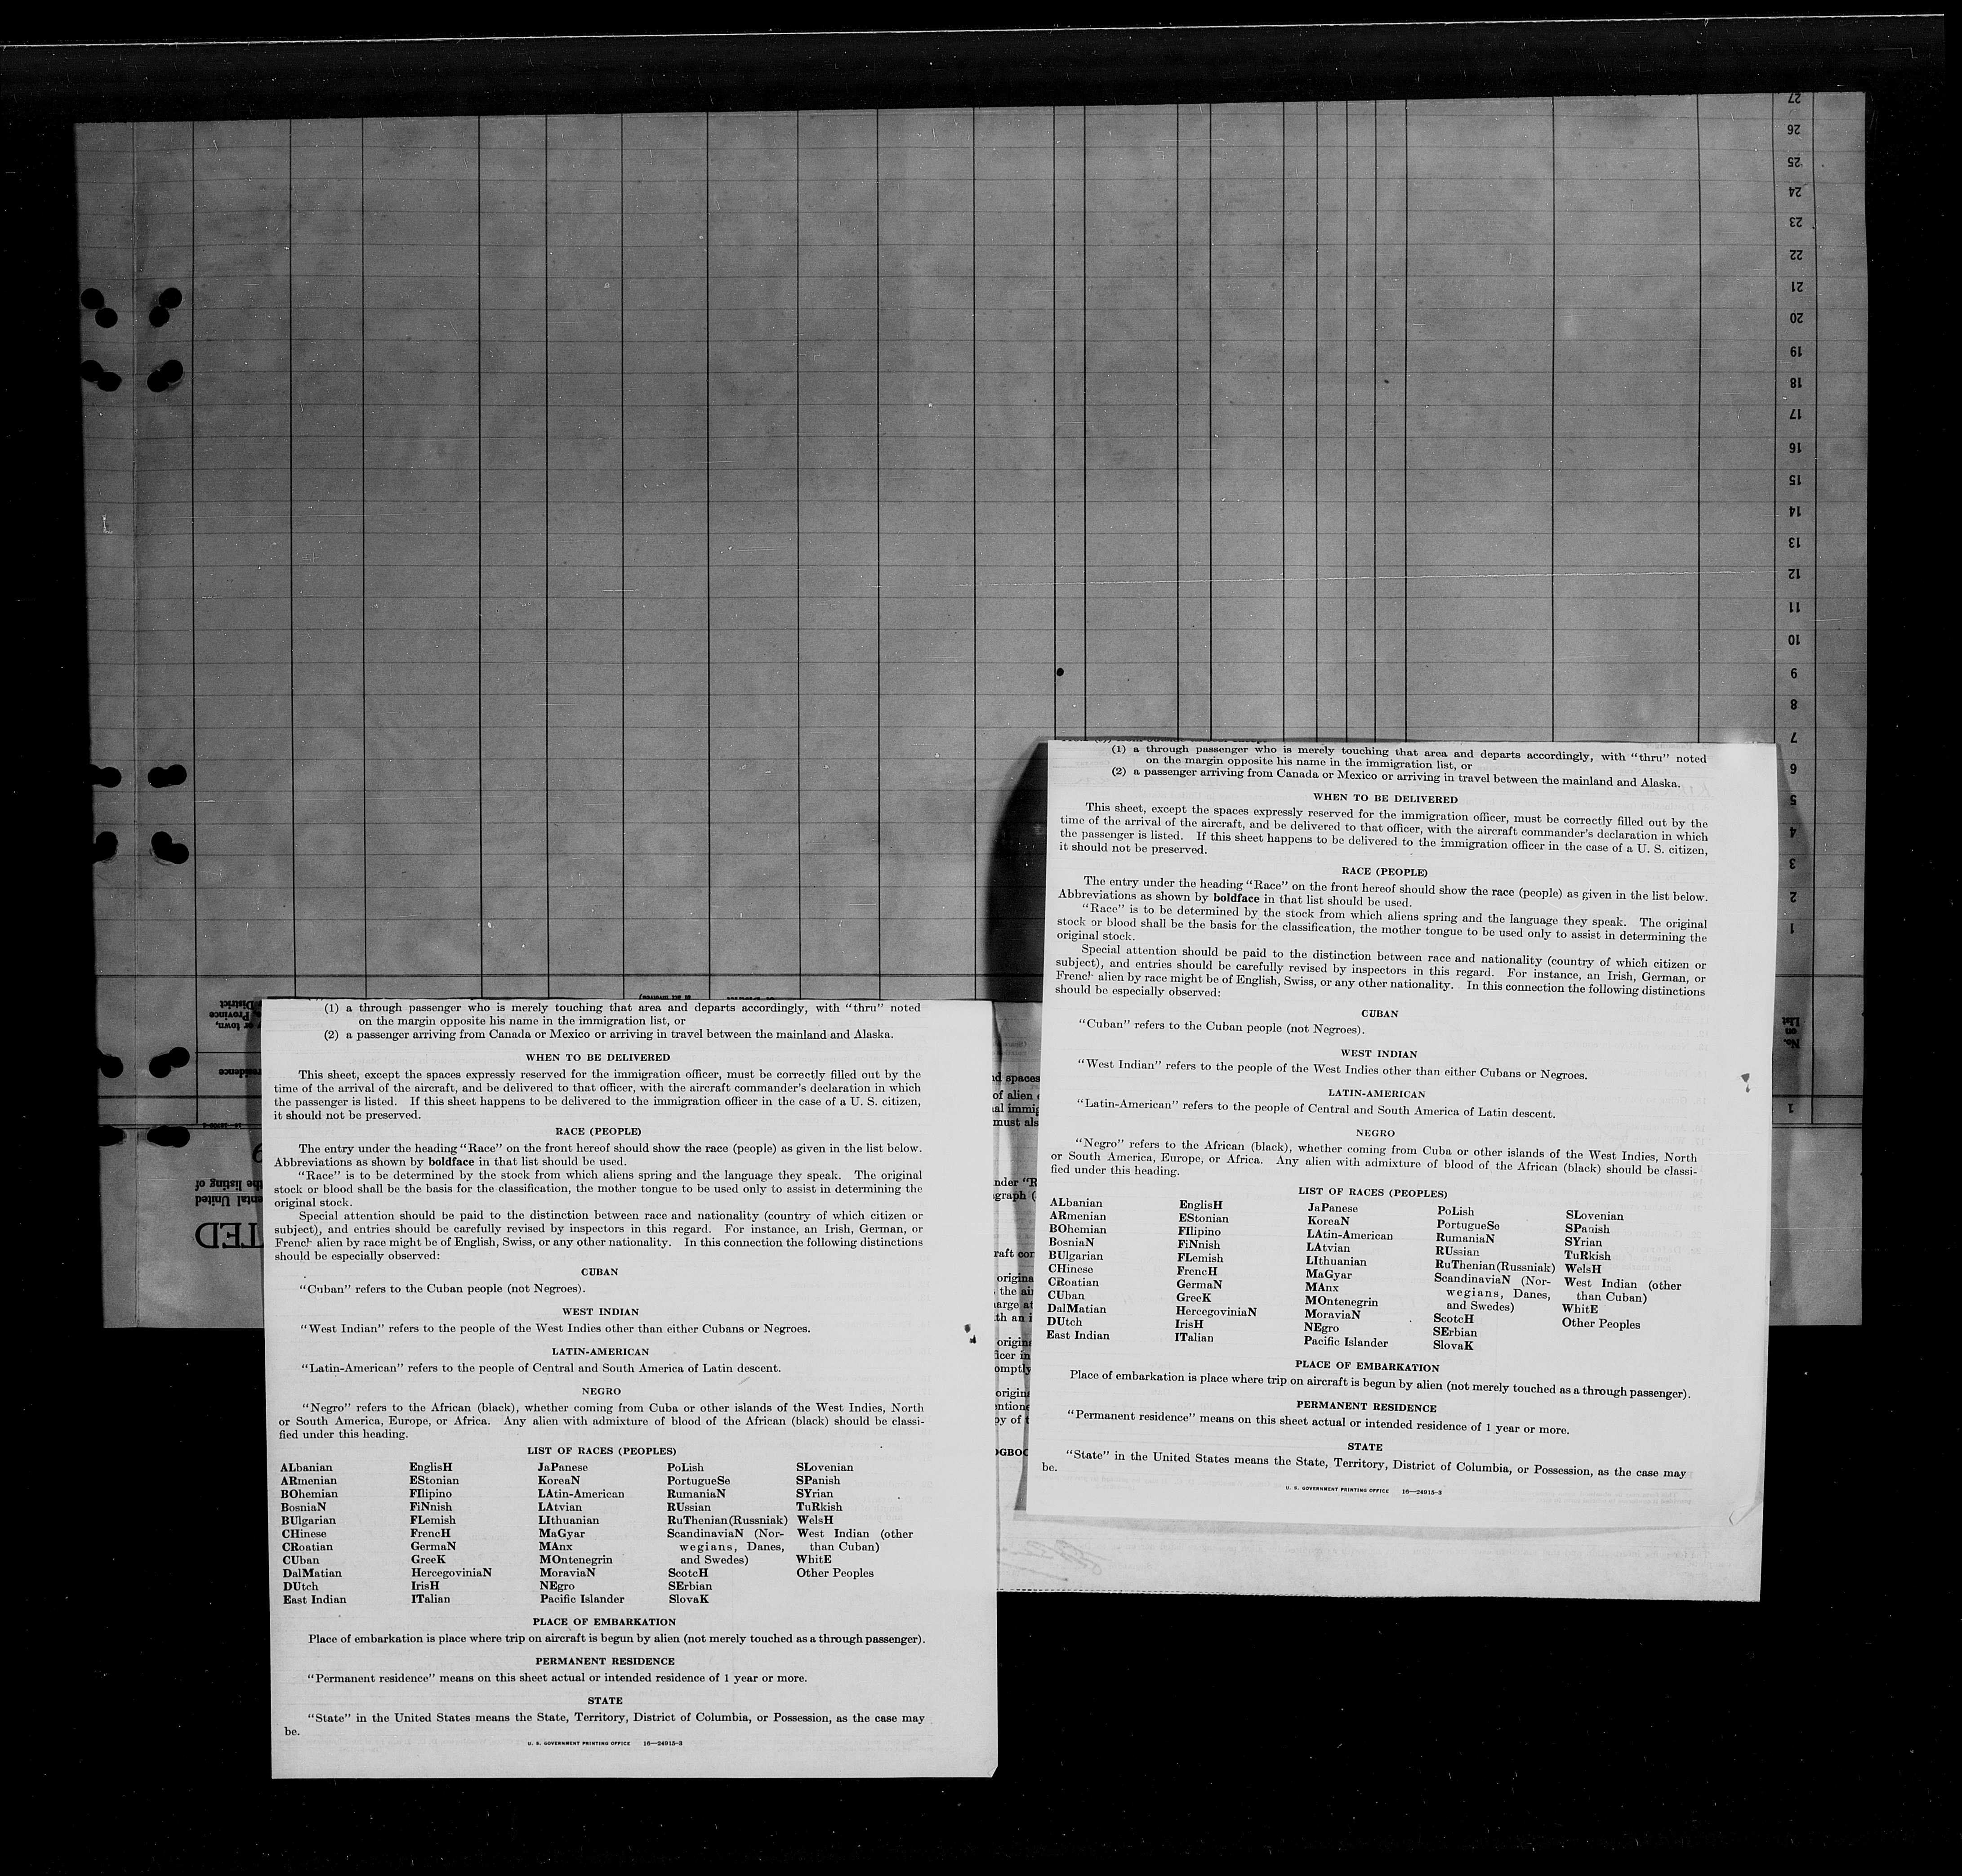 (1) a through passenger who is merely touching that area and departs accordingly, with “thru” noted
on the margin opposite his name in the immigration list, or
(2) a passenger arriving from Canada or Mexico or arriving in travel between the mainland and Alaska.
WHEN TO BE DELIVERED
This sheet, except the spaces expressly reserved for the immigration officer, must be correctly filled out by the
time of the arrival of the aircraft, and be delivered to that officer, with the aircraft commander’s declaration in which
the passenger is listed. If this sheet happens to be delivered to the immigration officer in the case of a U. S. citizen,
it should not be preserved.
RACE (PEOPLE)
The entry under the heading “Race” on the front hereof should show the race (people) as given in the list below.
Abbreviations as shown by boldface in that list should be used.
“Race” is to be determined by the stock from which aliens spring and the language they speak. The original
stock or blood shall be the basis for the classification, the mother tongue to be used only to assist in determining the
original stock.
Special attention should be paid to the distinction between race and nationality (country of which citizen or
subject), and entries should be carefully revised by inspectors in this regard. For instance, an Irish, German, or
French alien by race might be of English, Swiss, or any other nationality. In this connection the following distinctions
should be especially observed:
CUBAN
“Cuban” refers to the Cuban people (not Negroes).
WEST INDIAN
“West Indian” refers to the people of the West Indies other than either Cubans or Negroes.
LATIN-AMERICAN
“Latin-American” refers to the people of Central and South America of Latin descent.
NEGRO
“Negro” refers to the African (black), whether coming from Cuba or other islands of the West Indies, North
or South America, Europe, or Africa. Any alien with admixture of blood of the African (black) should be classi-
fied under this heading.
LIST OF RACES (PEOPLES)
ALbanian EnglisH JaPanese PoLish SLovenian
ARmenian EStonian KoreaN PortugueSe SPanish
BOhemian FIlipino LAtin-American RumaniaN SYrian
BosniaN FiNnish LAtvian RUssian TuRkish
BUlgarian FLemish LIthuanian RuThenian (Russniak) WelsH
CHinese FrencH MaGyar ScandinaviaN (Nor- West Indian (other
CRoatian GermaN MAnx wegians, Danes, than Cuban)
CUban GreeK MOntenegrin and Swedes) WhitE
DalMatian HercegoviniaN MoraviaN ScotcH Other Peoples
DUtch IrisH NEgro SErbian
East Indian ITalian Pacific Islander SlovaK
PLACE OF EMBARKATION
Place of embarkation is place where trip on aircraft is begun by alien (not merely touched as a through passenger).
PERMANENT RESIDENCE
“Permanent residence” means on this sheet actual or intended residence of 1 year or more.
STATE
“State” in the United States means the State, Territory, District of Columbia, or Possession, as the case may
be.
U. S. GOVERNMENT PRINTING OFFICE 16—24915-3
(1) a through passenger who is merely touching that area and departs accordingly, with “thru” noted
on the margin opposite his name in the immigration list, or
(2) a passenger arriving from Canada or Mexico or arriving in travel between the mainland and Alaska.
WHEN TO BE DELIVERED
This sheet, except the spaces expressly reserved for the immigration officer, must be correctly filled out by the
time of the arrival of the aircraft, and be delivered to that officer, with the aircraft commander’s declaration in which
the passenger is listed. If this sheet happens to be delivered to the immigration officer in the case of a U. S. citizen,
it should not be preserved.
RACE (PEOPLE)
The entry under the heading “Race” on the front hereof should show the race (people) as given in the list below.
Abbreviations as shown by boldface in that list should be used.
“Race” is to be determined by the stock from which aliens spring and the language they speak. The original
stock or blood shall be the basis for the classification, the mother tongue to be used only to assist in determining the
original stock.
Special attention should be paid to the distinction between race and nationality (country of which citizen or
subject), and entries should be carefully revised by inspectors in this regard. For instance, an Irish, German, or
French alien by race might be of English, Swiss, or any other nationality. In this connection the following distinctions
should be especially observed:
CUBAN
“Cuban” refers to the Cuban people (not Negroes).
WEST INDIAN
“West Indian” refers to the people of the West Indies other than either Cubans or Negroes.
LATIN-AMERICAN
“Latin-American” refers to the people of Central and South America of Latin descent.
NEGRO
“Negro” refers to the African (black), whether coming from Cuba or other islands of the West Indies, North
or South America, Europe, or Africa. Any alien with admixture of blood of the African (black) should be classi-
fied under this heading.
LIST OF RACES (PEOPLES)
ALbanian EnglisH JaPanese PoLish SLovenian
ARmenian EStonian KoreaN PortugueSe SPanish
BOhemian FIlipino LAtin-American RumaniaN SYrian
BosniaN FiNnish LAtvian RUssian TuRkish
BUlgarian FLemish LIthuanian RuThenian (Russniak) WelsH
CHinese FrencH MaGyar ScandinaviaN (Nor- West Indian (other
CRoatian GermaN MAnx wegians, Danes, than Cuban)
CUban GreeK MOntenegrin and Swedes) WhitE
DalMatian HercegoviniaN MoraviaN ScotcH Other Peoples
DUtch IrisH NEgro SErbian
East Indian ITalian Pacific Islander SlovaK
PLACE OF EMBARKATION
Place of embarkation is place where trip on aircraft is begun by alien (not merely touched as a through passenger).
PERMANENT RESIDENCE
“Permanent residence” means on this sheet actual or intended residence of 1 year or more.
STATE
“State” in the United States means the State, Territory, District of Columbia, or Possession, as the case may
be.
U. S. GOVERNMENT PRINTING OFFICE 16—24915-3
27
26
25
24
23
22
21
20
19
18
17
16
15
14
13
12
11
10
9
8
7
6
5
4
3
2
1
No.
on
List
1